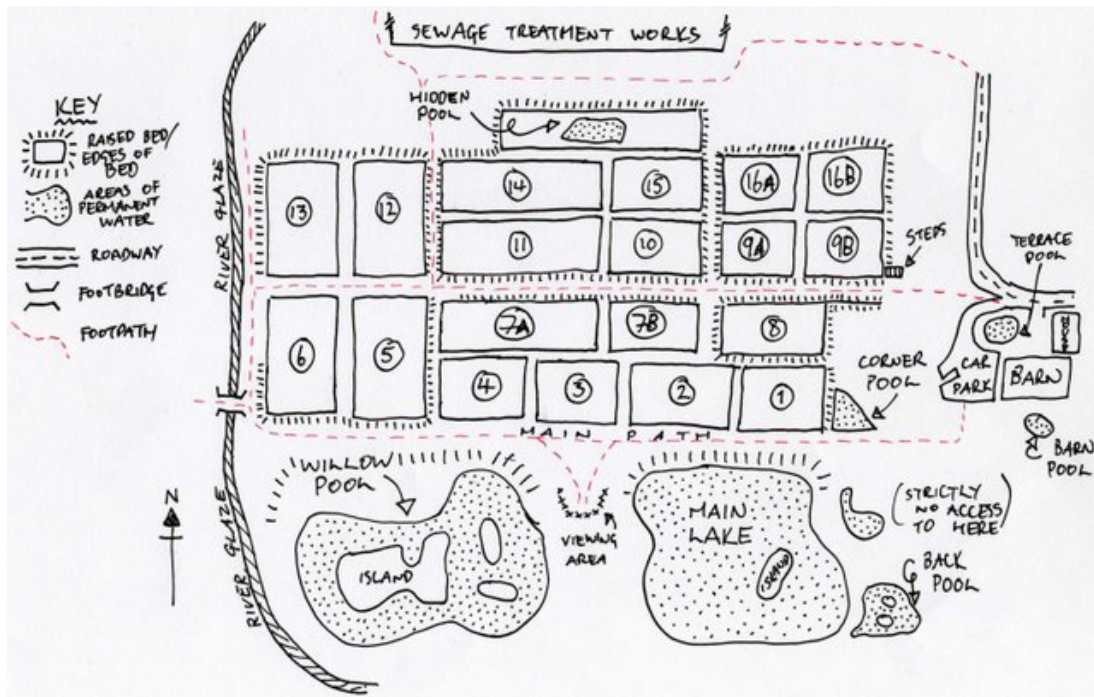 SEWAGE TREATMENT WORKS
KEY
RAISED BED/
EDGES OF
BED
AREAS OF
PERMANENT
WATER
ROADWAY
FOOTBRIDGE
FOOTPATH
RIVER GLAZE
RIVER GLAZE
N
HIDDEN
POOL
13
12
14
15
16A
16B
11
10
9A
9B
STEPS
TERRACE
POOL
6
5
7A
7B
8
4
3
2
1
CORNER
POOL
CAR
PARK
BARN
BARN
POOL
MAIN PATH
WILLOW
POOL
ISLAND
VIEWING
AREA
MAIN
LAKE
ISLAND
(STRICTLY
NO ACCESS
TO HERE)
BACK
POOL